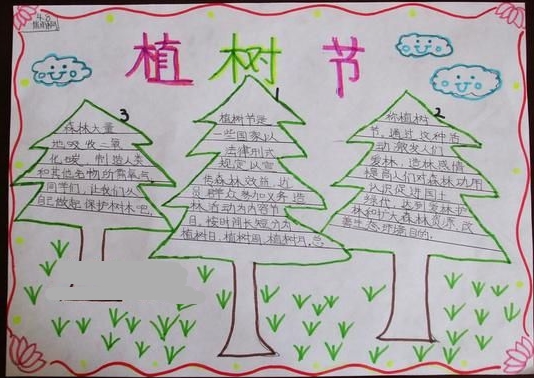 4.8
植树节
1
植树节是
一些国家以
法律形式
规定以宣
传森林效益,
动员群众参加义务造
林,为活动内容的节
日,按时间长短可分为
植树日,植树周,植树月,总
2
称植树
节,通过这种活
动,激发人们
爱林,造林感情
提高人们对森林功用
认识促进国土
绿化,达到爱林护
林和扩大森林资源,改
善生态环境目的.
3
森林大量
地吸收二氧
化碳,制造人类
和其他生物所需氧气
同学们,让我们从
自己做起保护树木吧,